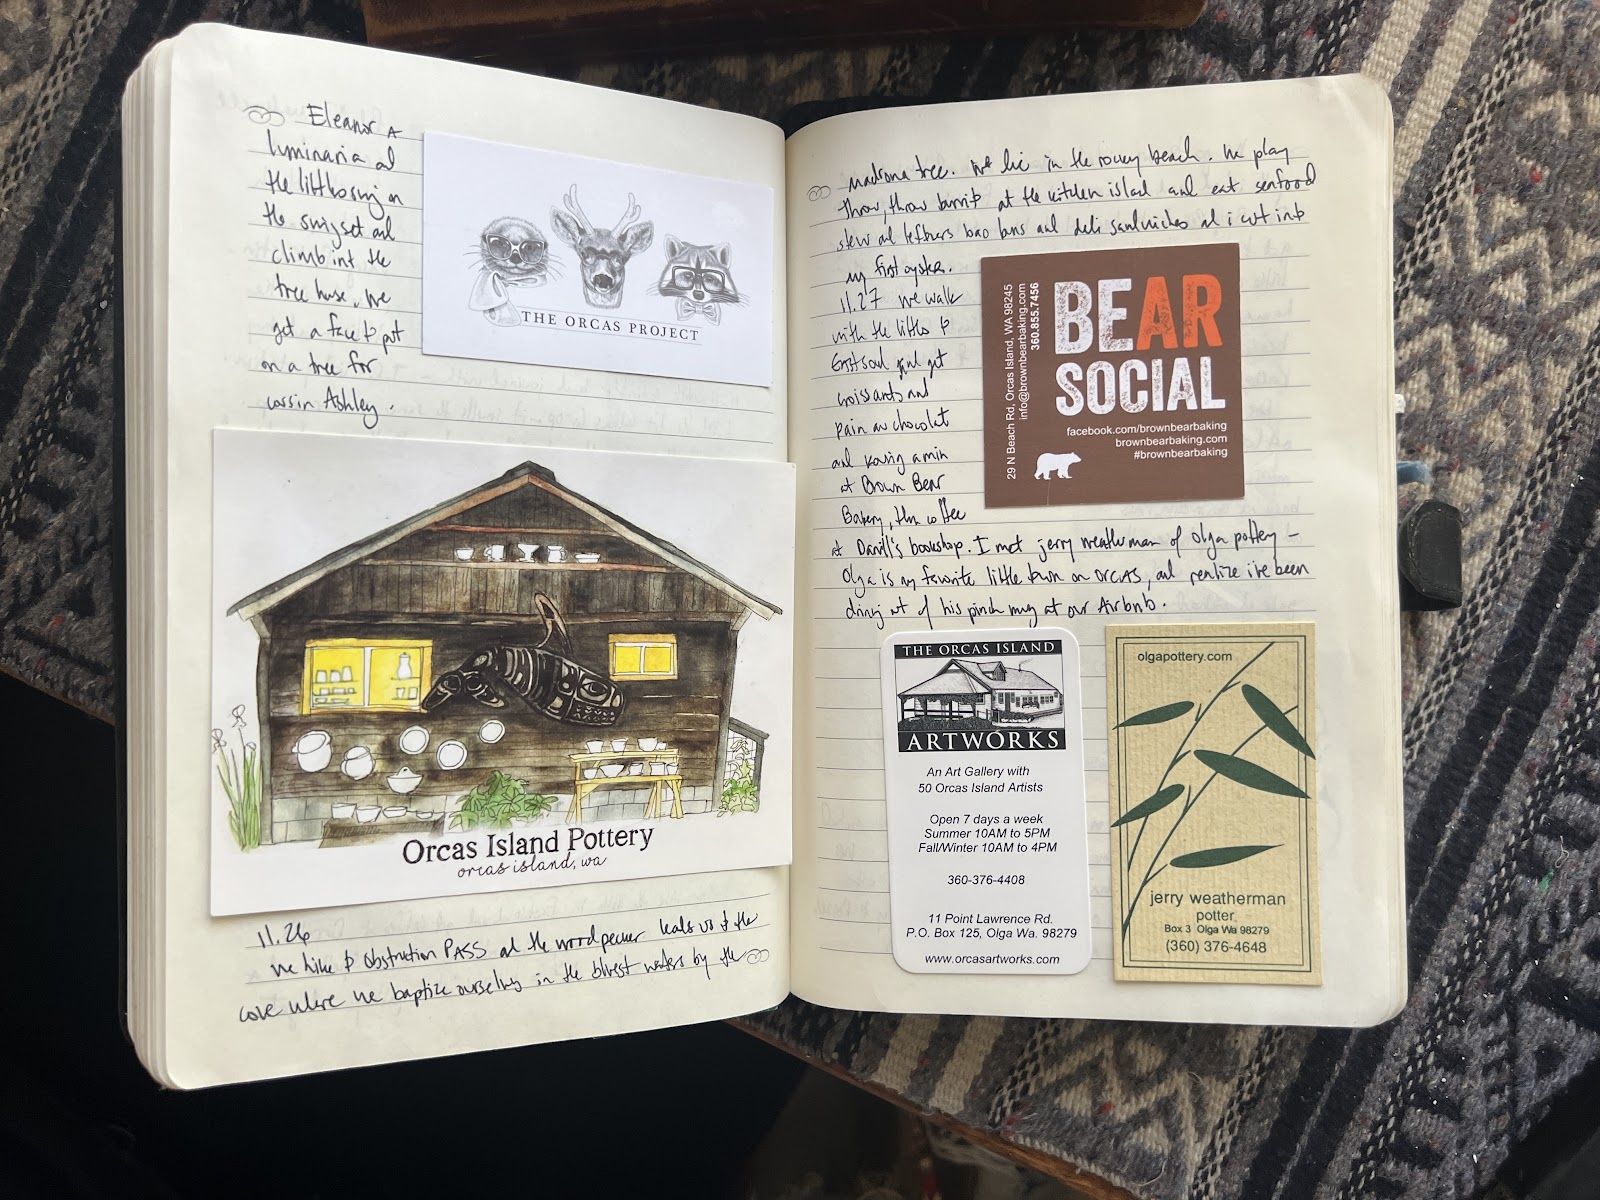 Eleanor A
luminaria ad
the littles swing on
the swingset and
climb into the
tree house. We
get a face to put
on a tree for
cousin Ashley.
THE ORCAS PROJECT
Orcas Island Pottery
orcas island, wa
11.26
we hike to Obstruction PASS and the woodpecker leads us to the
cove where we baptize ourselves in the bluest waters by the
madrona tree. We lie in the rocky beach. We play
throw, throw burrito at the kitchen island and eat seafood
stew and leftovers bao buns and deli sandwiches and i cut into
my first oyster.
11.27 we walk
with the littles to
Eastsound and get
croissants and
pain au chocolat
and
at Brown Bear
Bakery, then coffee
at Darvill's bookshop. I met jerry weatherman of olga pottery –
Olga is my favorite little town on ORCAS, and realize i've been
drinking out of his pinch mug at our Airbnb.
BEAR
SOCIAL
facebook.com/brownbearbaking
brownbearbaking.com
#brownbearbaking
29 N Beach Rd, Orcas Island, WA 98245
info@brownbearbaking.com
360.855.7456
THE ORCAS ISLAND
ARTWORKS
An Art Gallery with
50 Orcas Island Artists
Open 7 days a week
Summer 10AM to 5PM
Fall/Winter 10AM to 4PM
360-376-4408
11 Point Lawrence Rd.
P.O. Box 125, Olga Wa. 98279
www.orcasartworks.com
olgapottery.com
jerry weatherman
potter
Box 3 Olga Wa 98279
(360) 376-4648